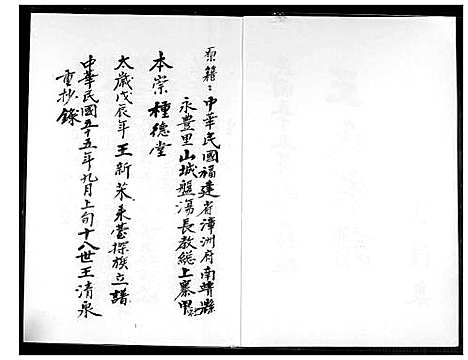 原籍：中華民國福建省漳洲府南靖縣
永豊里山城盤湯長教総上寨甲
本宗種德堂
太歲戊辰年王新萊來臺探族立譜
中華民國五十五年九月上旬十八世王清泉
重抄錄